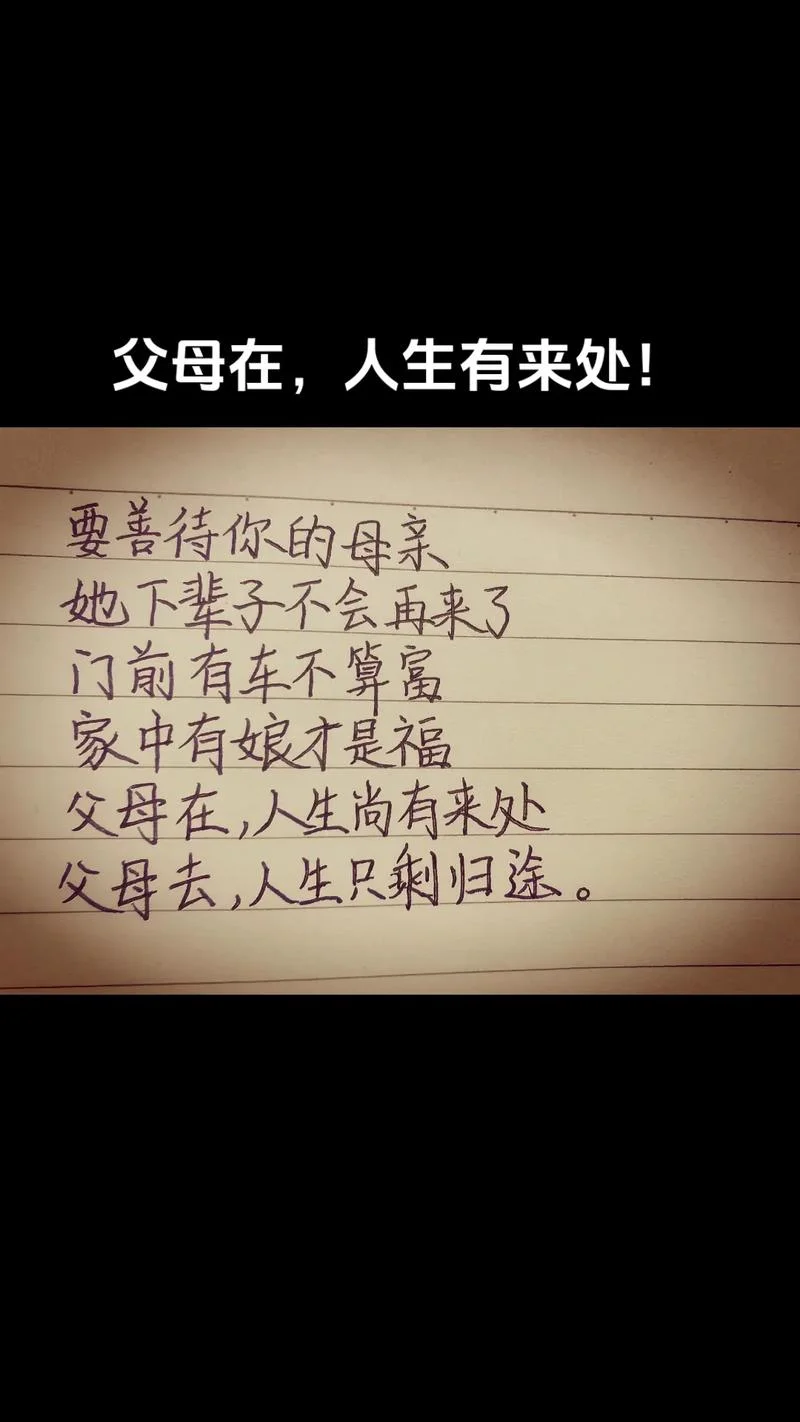 父母在，人生有来处！
要善待你的母亲
她下辈子不会再来了
门前有车不算富
家中有娘才是福
父母在,人生尚有来处
父母去,人生只剩归途。